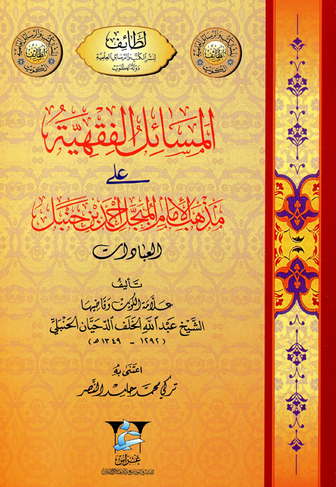 لطائف
لنشر الكتب والرسائل العلمية
دولة الكويت
المسائل الفقهية
على
مذهب الإمام المبجل أحمد بن حنبل
العبادات
تأليف
علامة الكويت وقاضيها
الشيخ عبد الله الخلف الدحيان الحنبلي
(١٢٩٢ - ١٣٤٩هـ)
اعتنى به
تركي محمد حامد النصر
غراس